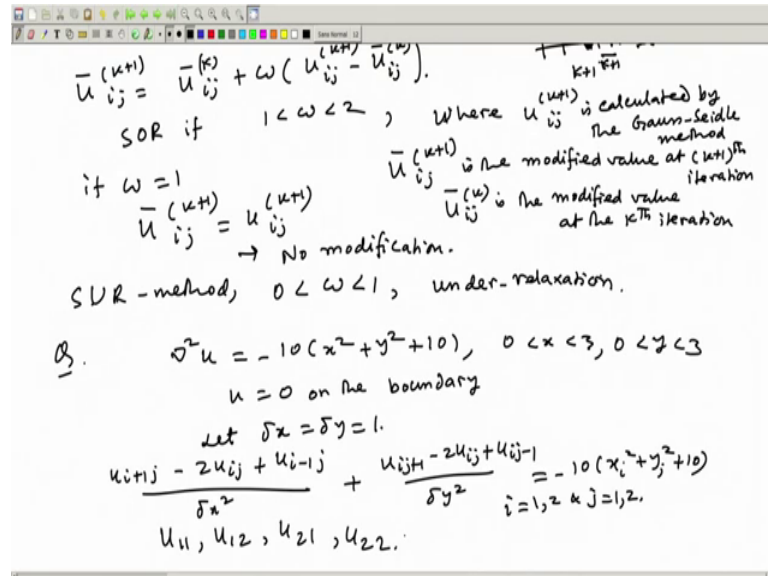 Sans Normal 12
ū_ij^(k+1) = ū_ij^(k) + ω( u_ij^(k+1) - ū_ij^(k) ).
k+1 k+1
SOR if 1 < ω < 2 , where u_ij^(k+1) is calculated by the Gauss-Seidle method
if ω = 1
ū_ij^(k+1) is the modified value at (k+1)^th iteration
ū_ij^(k+1) = u_ij^(k+1)
ū_ij^(k) is the modified value at the k^th iteration
→ No modification.
SUR-method, 0 < ω < 1 , under-relaxation.
Q. ∇²u = -10(x²+y²+10), 0 < x < 3, 0 < y < 3
u = 0 on the boundary
Let δx = δy = 1.
(u_i+1j - 2u_ij + u_i-1j)/δx² + (u_ij+1 - 2u_ij + u_ij-1)/δy² = -10(x_i²+y_j²+10)
i=1,2 & j=1,2.
u_11, u_12, u_21, u_22.